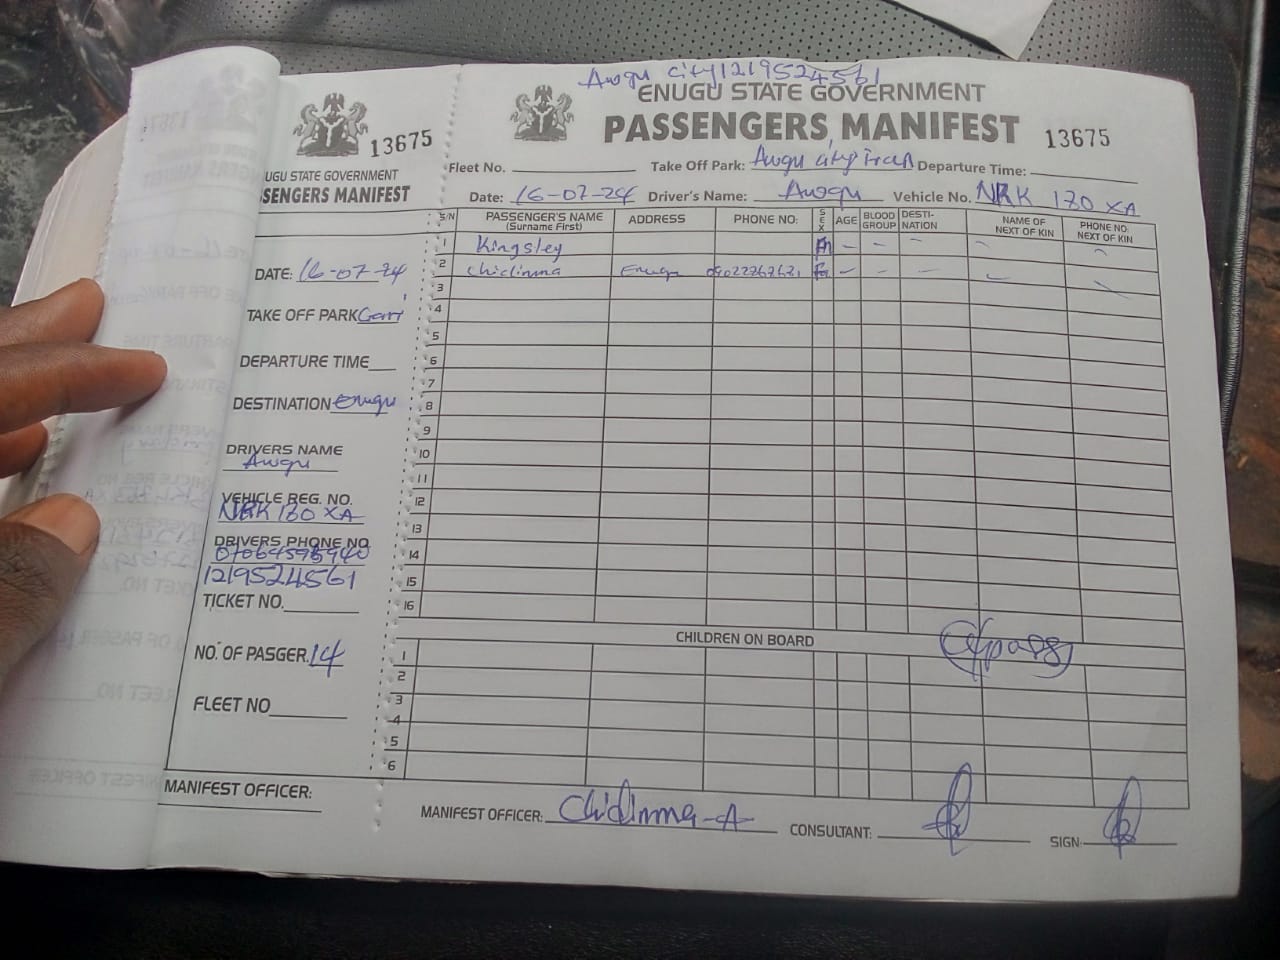 13675
UGU STATE GOVERNMENT
SENGERS MANIFEST
DATE: 16-07-24
TAKE OFF PARK Gari
DEPARTURE TIME
DESTINATION Enugu
DRIVERS NAME
Awgu
VEHICLE REG. NO.
NRK 170 XA
DRIVERS PHONE NO
1219524561
TICKET NO.
NO. OF PASGER. 14
FLEET NO
MANIFEST OFFICER:
Awgu city 1219524561
ENUGU STATE GOVERNMENT
PASSENGERS MANIFEST 13675
Fleet No. Take Off Park: Awgu city Tran Departure Time:
Date: 16-07-24 Driver's Name: Awgu Vehicle No. NRK 170 XA
S/N PASSENGER'S NAME (Surname First) ADDRESS PHONE NO: SEX AGE BLOOD GROUP DESTI-NATION NAME OF NEXT OF KIN PHONE NO: NEXT OF KIN
1 Kingsley M - - - - -
2 Chidinma Enugu F - - - - -
3
4
5
6
7
8
9
10
11
12
13
14
15
16
CHILDREN ON BOARD
1
2
3
4
5
6
MANIFEST OFFICER: Chidinma-A CONSULTANT: SIGN: